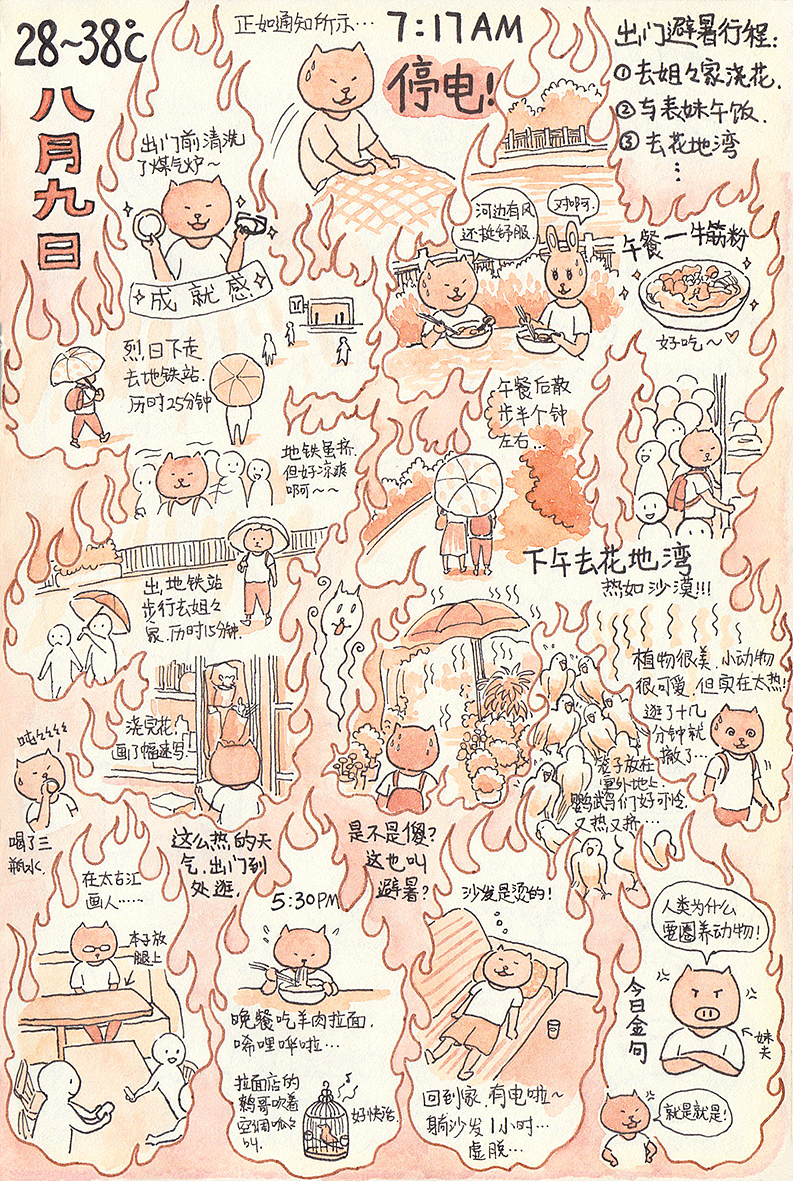 28~38℃
八月九日
正如通知所示…
7:17AM
停电!
出门避暑行程:
①去姐々家浇花.
②与表妹午饭.
③去花地湾
⋮
出门前清洗
了煤气炉~
成就感
烈日下走
去地铁站.
历时25分钟
地铁虽挤.
但好凉爽
啊~~
出地铁站
步行去姐々
家.历时15分钟.
浇完花,
画了幅速写.
吨々々々
喝了三
瓶水.
河边有风
还挺舒服
对啊.
午餐一牛筋粉
好吃~♡
午餐后散
步半个钟
左右…
下午去花地湾
热如沙漠!!!
植物很美.小动物
很可爱.但实在太热!
逛了十几
分钟就
撤了…
笼子放在
室外地上.
鹦鹉们好可怜.
又热又挤…
这么热的天
气.出门到
处逛.
是不是傻?
这也叫
避暑?
在太古汇
画人……
本子放
腿上
5:30PM
晚餐吃羊肉拉面.
唏哩哗啦…
拉面店的
鹩哥吹着
空调呱々
叫.
好快活.
沙发是烫的!
回到家.有电啦~
躺沙发1小时…
虚脱…
今日金句
人类为什么
要圈养动物!
妹夫
就是就是!